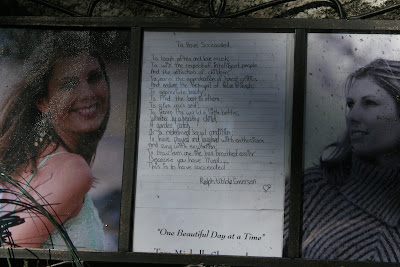 To Have Succeeded
To laugh often and love much:
To win the respect of intelligent people
And the affection of children;
To earn the appreciation of honest critics
And endure the betrayal of false friends;
To appreciate beauty;
To find the best in others;
To give one's self;
To leave the world a little better,
Whether by a healthy child,
A garden patch,
Or a redeemed social condition;
To have played and laughed with enthusiasm
And sung with exultation;
To know even one life has breathed easier
Because you have lived...
This is to have succeeded.
Ralph Waldo Emerson
"One Beautiful Day at a Time"